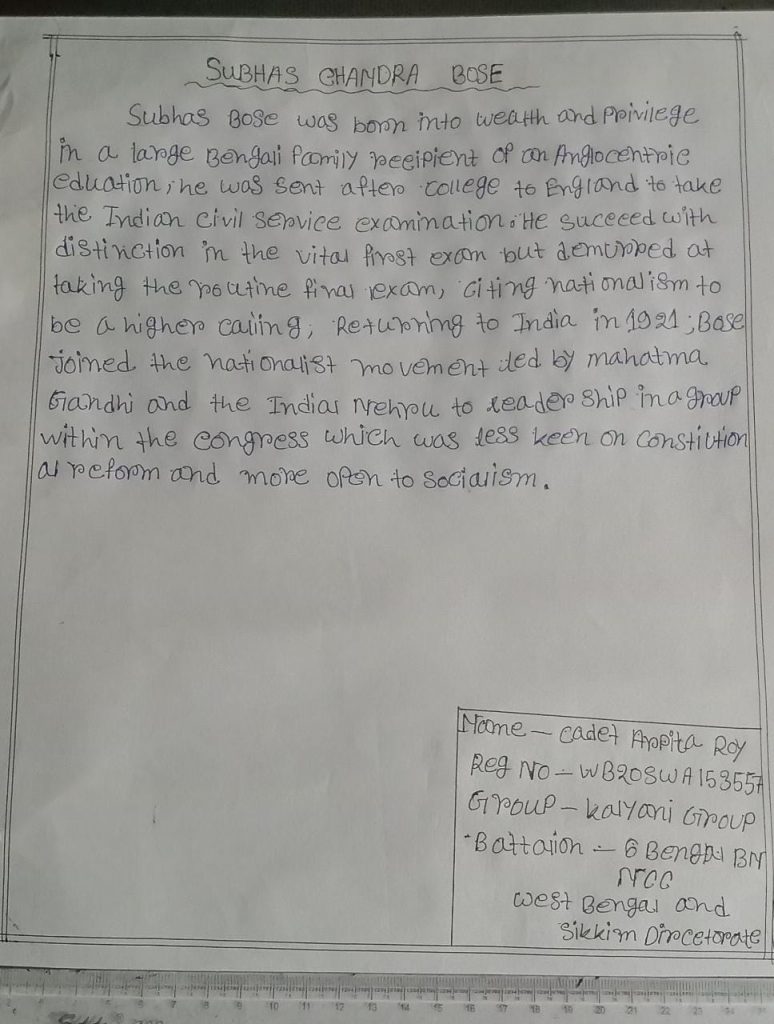 SUBHAS CHANDRA BOSE
Subhas Bose was born into wealth and Privilege
in a large Bengali family recipient of an Anglocentric
eduation, he was sent after college to England to take
the Indian Civil Service examination. He suceeed with
distinction in the vital first exam but demurred at
taking the routine final exam, Citing nationalism to
be a higher calling; Returning to India in 1921; Bose
joined the nationalist movement led by mahatma
Gandhi and the Indial Nrehru to leader ship in a group
within the congress which was less keen on Constiution
al reform and more open to Socialism.
Name - Cadet Arpita Roy
Reg No - WB20SWA153557
Group - Kalyani Group
Battalion - 6 Bengal BN
NCC
West Bengal and
Sikkim Dircetorate
6 7 8 9 10 11 12 13 14 15 16 17 18 19 20 21 22 23